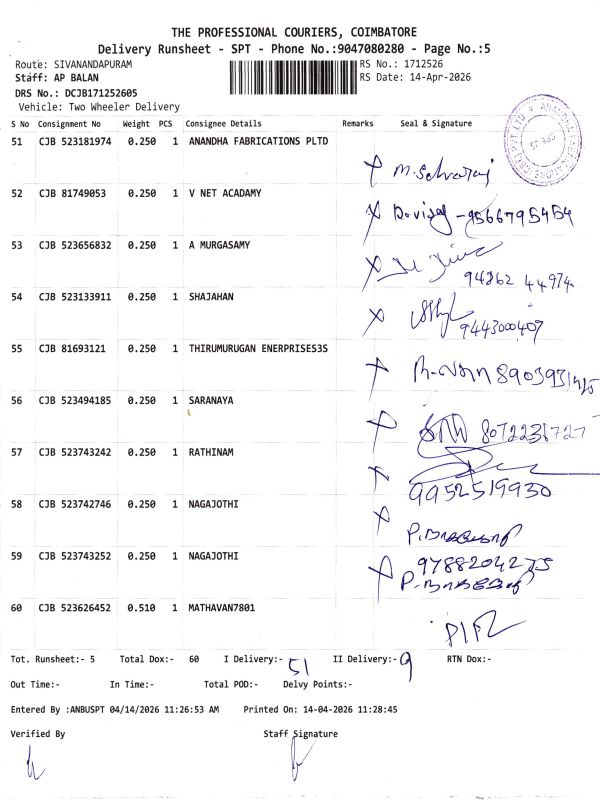 THE PROFESSIONAL COURIERS, COIMBATORE
Delivery Runsheet - SPT - Phone No.:9047080280 - Page No.:5
Route: SIVANANDAPURAM
RS No.: 1712526
Staff: AP BALAN
RS Date: 14-Apr-2026
DRS No.: DCJB171252605
Vehicle: Two Wheeler Delivery
S No Consignment No Weight PCS Consignee Details Remarks Seal & Signature
51 CJB 523181974 0.250 1 ANANDHA FABRICATIONS PLTD
M. Selvaraj
52 CJB 81749053 0.250 1 V NET ACADAMY
9566795454
53 CJB 523656832 0.250 1 A MURGASAMY
94862 44974
54 CJB 523133911 0.250 1 SHAJAHAN
9443000407
55 CJB 81693121 0.250 1 THIRUMURUGAN ENERPRISES3S
56 CJB 523494185 0.250 1 SARANAYA
57 CJB 523743242 0.250 1 RATHINAM
9952519930
58 CJB 523742746 0.250 1 NAGAJOTHI
59 CJB 523743252 0.250 1 NAGAJOTHI
9788204275
60 CJB 523626452 0.510 1 MATHAVAN7801
Tot. Runsheet:- 5 Total Dox:- 60 I Delivery:- 51 II Delivery:- 9 RTN Dox:-
Out Time:- In Time:- Total POD:- Delvy Points:-
Entered By :ANBUSPT 04/14/2026 11:26:53 AM Printed On: 14-04-2026 11:28:45
Verified By Staff Signature